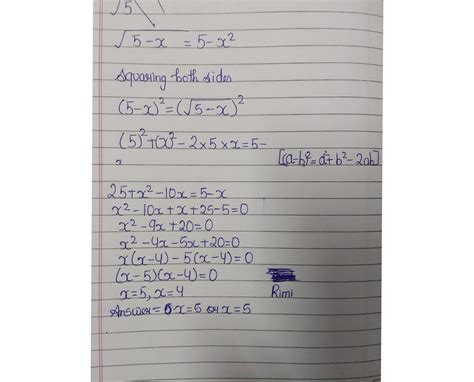 √5
√5-x = 5-x²
Squaring both sides
(5-x)² = (√5-x)²
(5)²+(x)²-2×5×x=5-
x
[(a-b)²=a²+b²-2ab]
25+x²-10x=5-x
x²-10x+x+25-5=0
x²-9x+20=0
x²-4x-5x+20=0
x(x-4)-5(x-4)=0
(x-5)(x-4)=0
x=5, x=4
Rimi
Answer = x=5 or x=5